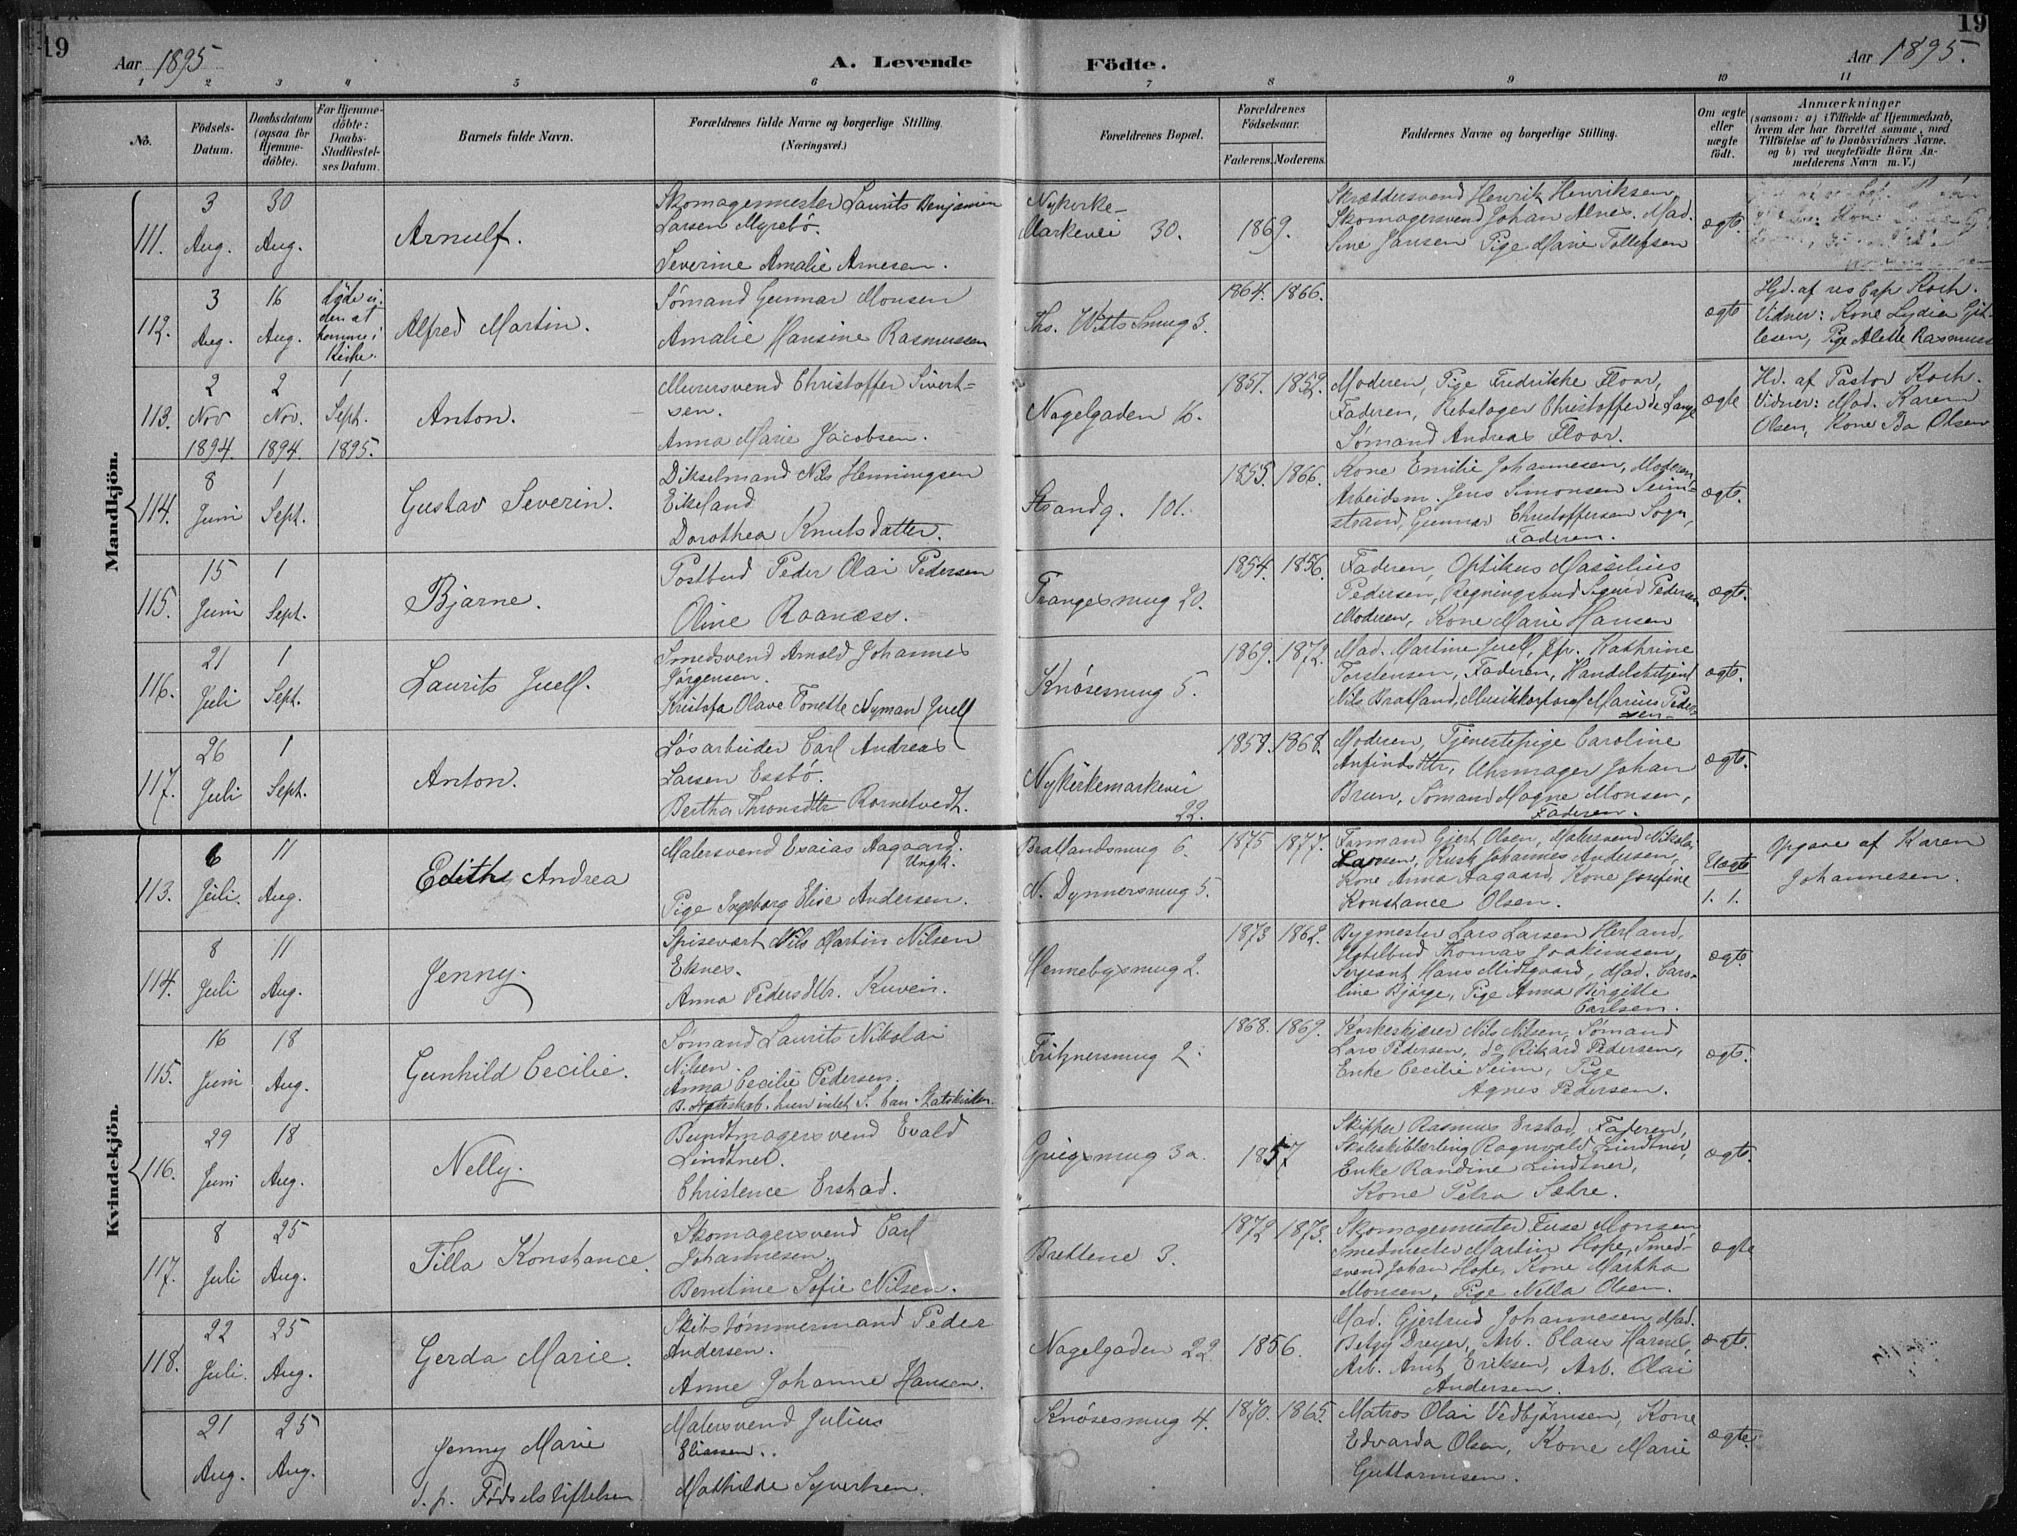 19
19
Aar 1895
A. Levende
Födte.
Aar 1895.
1 2 3 4 5 6 7 8 9 10 11
No.
Födsels-
Datum.
Daabsdatum
(ogsaa for
Hjemme-
döbte).
For Hjemme-
döbte:
Daabs-
Stadfæstel-
ses Datum.
Barnets fulde Navn.
Forældrenes fulde Navne og borgerlige Stilling.
(Næringsvei.)
Forældrenes Bopæl.
Forældrenes
Födselsaar.
Faderens. Moderens.
Faddernes Navne og borgerlige Stilling.
Om ægte
eller
uægte
födt.
Anmærkninger
(saasom: a) i Tilfælde af Hjemmedaab,
hvem der har forrettet samme, med
Tilföielse af to Daabsvidners Navne,
og b) ved uægtefödte Börn An-
melderens Navn m. V.)
Mandkjön.
111.
3
Aug.
30
Aug.
Arnulf.
Skomagermester Laurits Benjamin
Larsen Myrebö.
Severine Amalie Arnesen.
Nykirke-
Markevei 30.
1869.
Skræddersvend Henrik Henriksen,
Skomagersvend Johan Alnes, Mad.
Sine Jansen Pige Marie Tollefsen
ægte.
112.
3
Aug.
16
Aug.
døde u-
den at
komme i
Kirke.
Alfred Martin.
Sømand Gunnar Monsen
Amalie Hansine Rasmussen
Ths. Witts Smug 3.
1864. 1866.
ægte
Hjd. af res Cap Koch.
Vidner: Kone Lydia Git-
lesen, Pige Alette Rasmuss
113.
2
Nov
1894.
2
Nov.
1894.
1
Sept.
1895.
Anton.
Murersvend Christoffer Sivert-
sen.
Anna Marie Jacobsen.
Nagelgaden 16.
1857. 1859.
Moderen, Pige Fredrikke Floor,
Faderen, Rebslager Christoffer de Lange
Sømand Andreas Floor.
ægte
Hd. af Pastor Koch.
Vidner: Mad. Karen
Olsen, Kone Ida Olsen
114.
8
Juni
1
Sept.
Gustav Severin.
Dikselmand Nils Henningsen
Eikeland
Dorothea Knutsdatter.
Strandg. 101.
1855. 1866.
Kone Emilie Johannesen, Moderen
Arbeidsm. Jens Simonsen Seim-
strand, Gunnar Christoffersen Sogn,
Faderen.
ægte.
115.
15
Juni
1
Sept.
Bjarne.
Postbud Peder Olai Pedersen
Oline Raanæss.
Trangesmug 20.
1854. 1856.
Faderen, Optikus Massilius
Pedersen, Regningsbud Sigurd Pedersen
Moderen, Kone Marie Hansen
ægte.
116.
21
Juli
1
Sept.
Laurits Juell.
Smedsvend Arnold Johannes
Jørgensen.
Kristofa Olave Tonette Nyman Juell
Knøsesmug 5.
1869. 1872.
Mad. Martine Juell, Jfr. Kathrine
Torstensen, Faderen, Handelsbetjent
Nils Bratland, Musikkorporal Marius Peder-
sen.
ægte.
117.
26
Juli
1
Sept.
Anton.
Løsarbeider Carl Andreas
Larsen Essbø.
Bertha Thronsdtr Rornetvedt.
Nykirkemarkevei
22.
1859. 1868.
Moderen, Tjenestepige Caroline
Anfindsdtr, Uhrmager Johan
Brun, Sømand Magne Monsen,
Faderen.
ægte.
Kvindekjön.
113.
6
Juli.
11
Aug.
Edith Andrea
Malersvend Esaias Aagaard.
Ungk.
Pige Ingeborg Elise Andersen.
Bratlandsmug 6.
N. Dynnersmug 5.
1875 1877.
Formand Gjert Olsen, Malersvend Nikolai
Larsen, Kusk Johannes Andersen,
Kone Anna Aagaard, Kone Josefine
Konstance Olsen.
Uægte
1. 1.
Opgave af Karen
Johannesen.
114.
8
Juli
11
Aug.
Jenny.
Spisevært Nils Martin Nilsen
Eknes.
Anna Pedersdtr. Kuven.
Hennebysmug 2.
1873 1862.
Bygmester Lars Larsen Herland,
Hotelbud Thomas Joakimsen,
Sergeant Hans Midtgaard, Mad. Caro-
line Bjørge, Pige Anna Birgitte
Carlsen.
ægte.
115.
16
Juni
18
Aug.
Gunhild Cecilie.
Sømand Laurits Nikolai
Nilsen.
Anna Cecilie Pedersen.
Fritznersmug 2.
1868. 1869.
Korkeskjærer Nils Nilsen, Sømand
Lars Pedersen, do Rikard Pedersen,
Enke Cecilie Seim, Pige
Agnes Pedersen.
ægte.
116.
29
Juni
18
Aug.
Nelly.
Bundtmagersvend Evald
Lindtner.
Christence Erstad.
Griegsmug 3a.
1857
Skipper Rasmus Erstad, Faderen,
Skoleskiblærling Ragnvald Lindtner,
Enke Randine Lindtner,
Kone Petra Sætre.
ægte.
117.
8
Juli
25
Aug.
Tilla Konstance.
Skomagersvend Carl
Johannesen.
Berntine Sofie Nilsen.
Brettene 3.
1872 1873.
Skomagermester Fuse Monsen
Smedmester Martin Hope, Smed-
svend Johan Hope, Kone Martha
Monsen, Pige Nella Olsen.
ægte
118.
22
Juli.
25
Aug.
Gerda Marie.
Skibstømmermand Peder
Andersen.
Anne Johanne Hansen.
Nagelgaden 22.
1856.
Mad. Gjertrud Johannesen, Mad.
Betzy Dreyer, Arb. Claus Harms,
Arb. Arnt Eriksen, Arb. Olai
Andersen.
ægte.
21
Aug.
25
Aug.
Jenny Marie
d. p. Fødselsstiftelsen
Malersvend Julius
Eliassen.
Mathilde Syvertsen.
Knøsesmug 4.
1870. 1865.
Matros Olai Vedbjørnsen, Kone
Edvarda Olsen, Kone Marie
Guttormsen.
ægte.